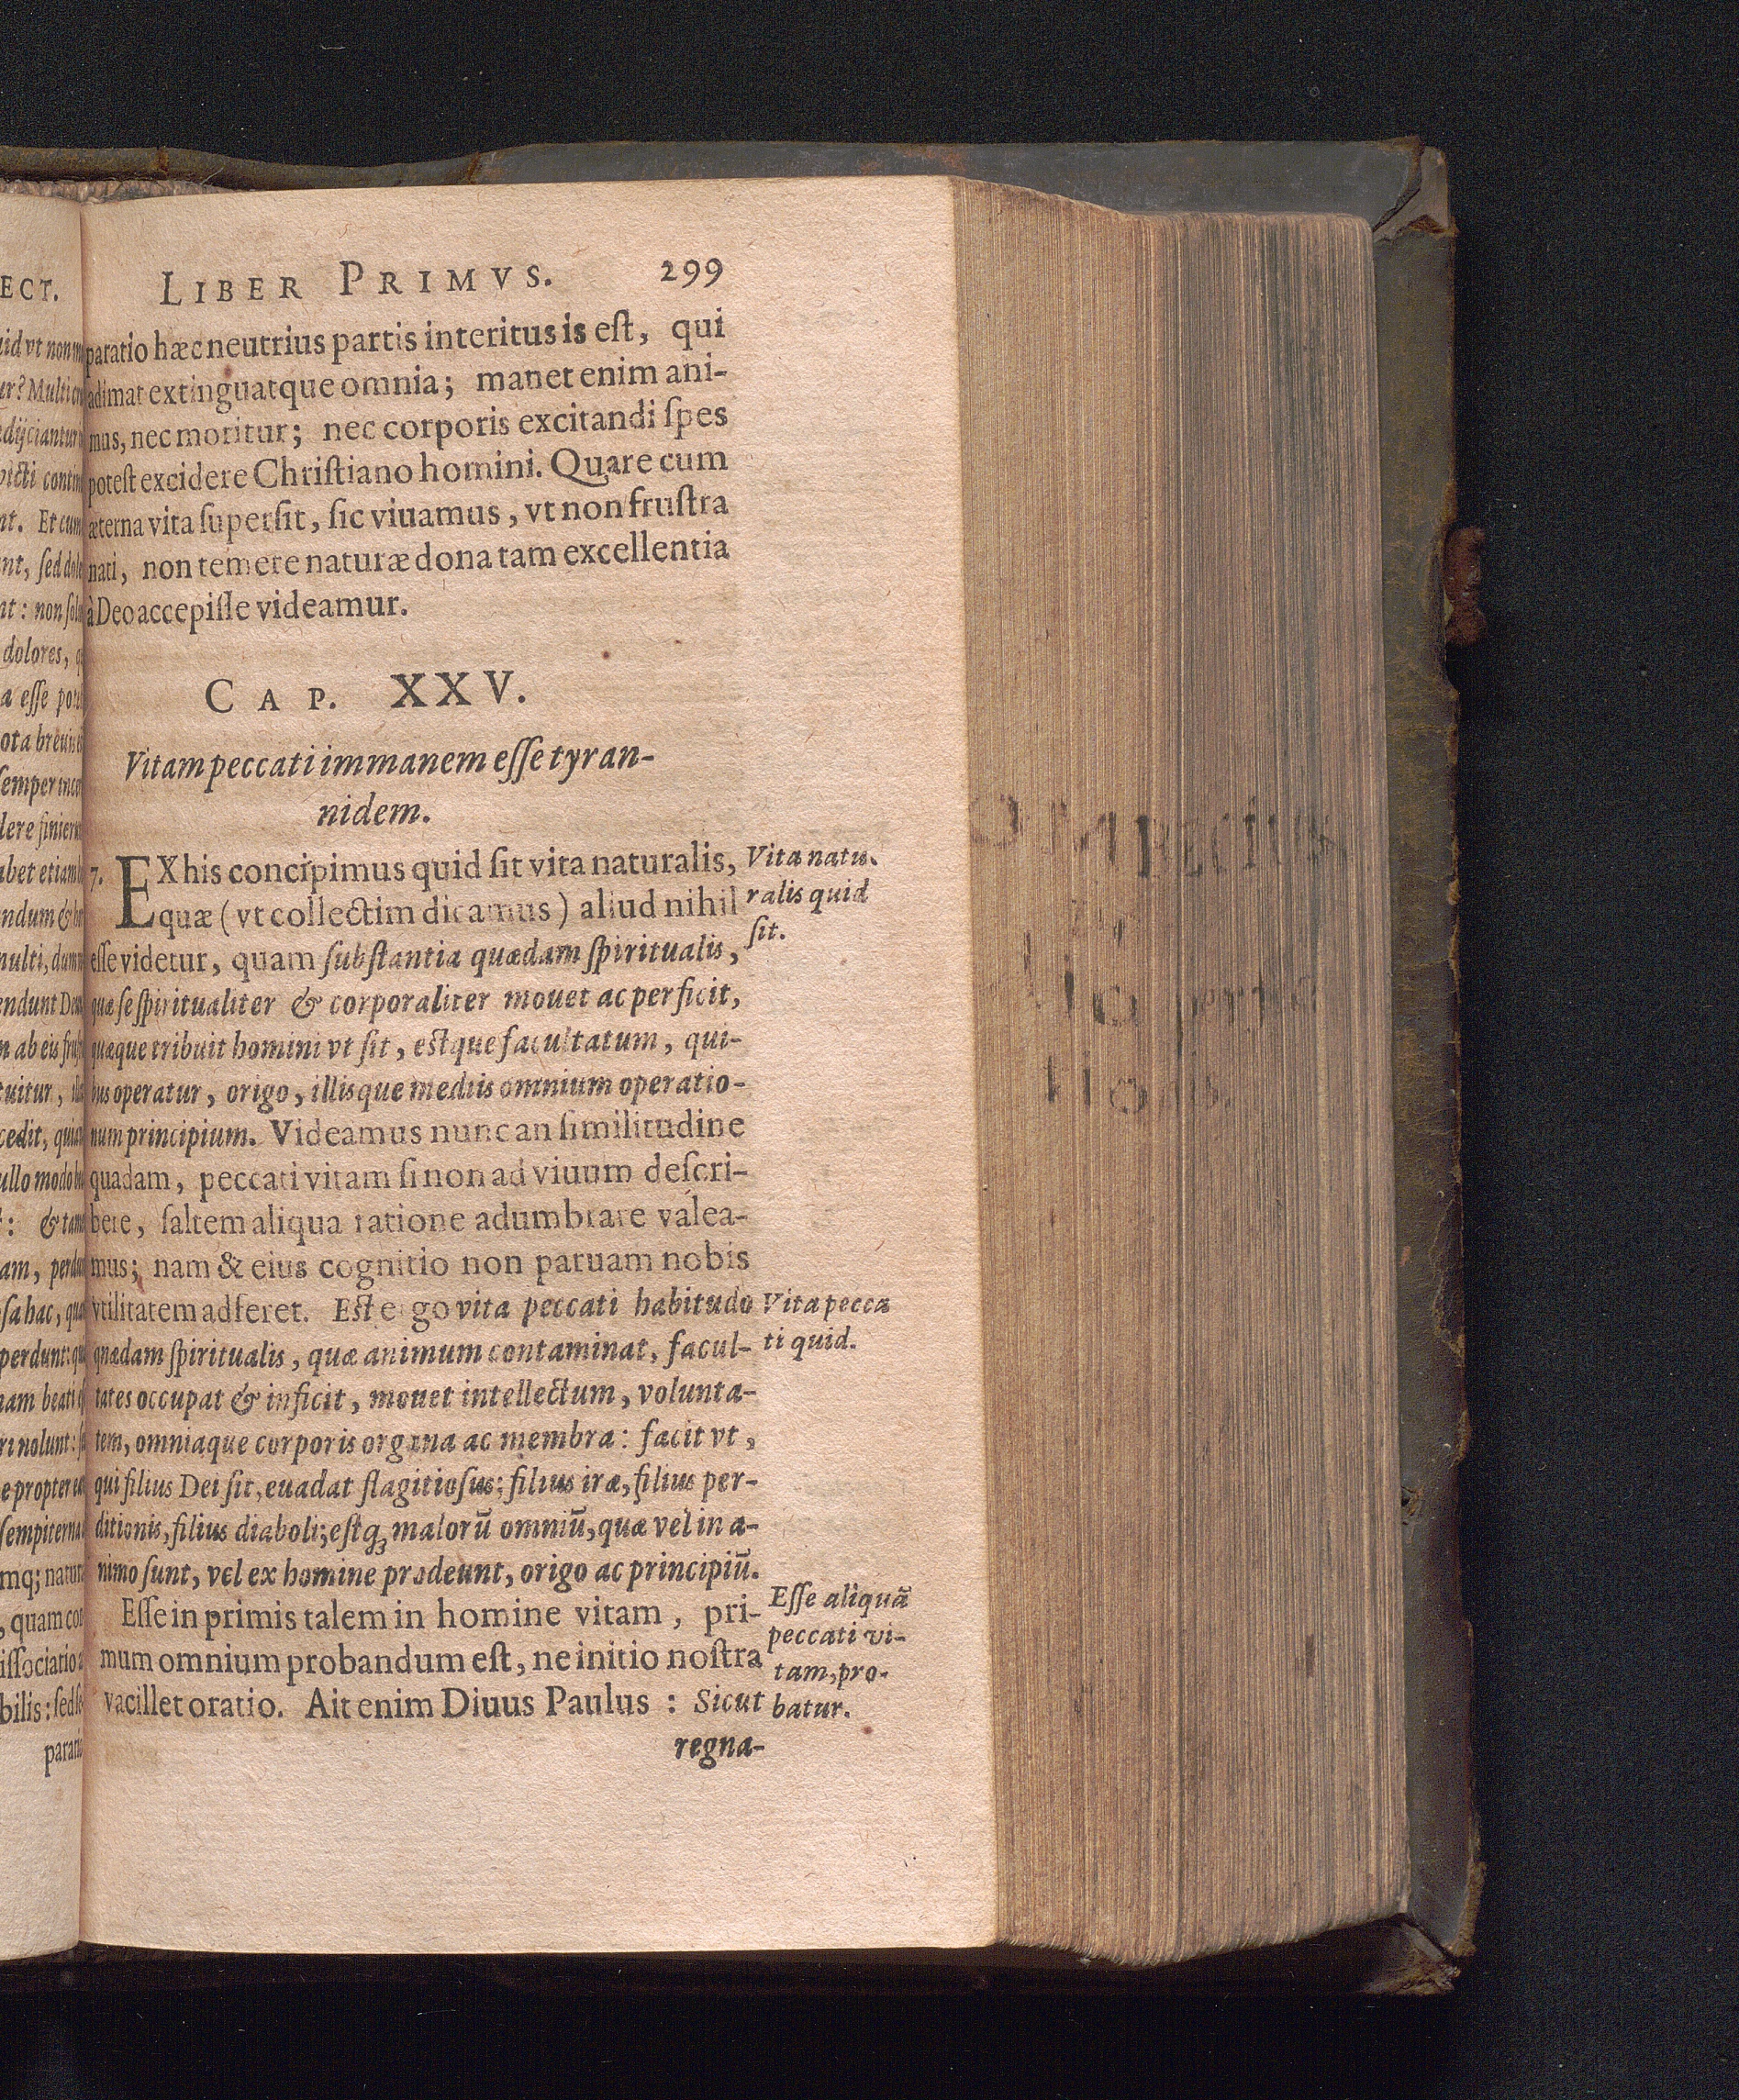 LIBER PRIMVS. 299
paratio hæc neutrius partis interitus is est, qui
adimat extinguatque omnia; manet enim ani-
mus, nec moritur; nec corporis excitandi spes
potest excidere Christiano homini. Quare cum
æterna vita supersit, sic viuamus, vt non frustra
nati, non temere naturæ dona tam excellentia
à Deo accepisse videamur.
CAP. XXV.
Vitam peccati immanem esse tyran-
nidem.
7. EX his concipimus quid sit vita naturalis,
quæ (vt collectim dicamus) aliud nihil
esse videtur, quam substantia quædam spiritualis,
quæ se spiritualiter & corporaliter mouet ac perficit,
quæque tribuit homini vt sit, estque facultatum, qui-
bus operatur, origo, illisque mediis omnium operatio-
num principium. Videamus nunc an similitudine
quadam, peccati vitam si non ad viuum descri-
bere, saltem aliqua ratione adumbrare valea-
mus; nam & eius cognitio non paruam nobis
vtilitatem adferet. Est ergo vita peccati habitudo
quædam spiritualis, quæ animum contaminat, facul-
tates occupat & inficit, mouet intellectum, volunta-
tem, omniaque corporis organa ac membra: facit vt,
qui filius Dei sit, euadat flagitiosus; filius iræ, filius per-
ditionis, filius diaboli; estq; malorū omniū, quæ vel in a-
nimo sunt, vel ex homine prodeunt, origo ac principiū.
Esse in primis talem in homine vitam, pri-
mum omnium probandum est, ne initio nostra
vacillet oratio. Ait enim Diuus Paulus: Sicut
regna-
Vita natu-
ralis quid
sit.
Vita pecca
ti quid.
Esse aliquā
peccati vi-
tam, pro-
batur.